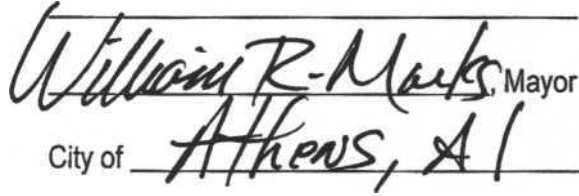 William R-Marks, Mayor
City of Athens, Al